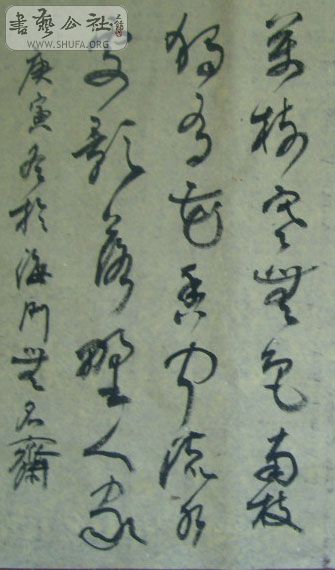 書藝公社
WWW.SHUFA.ORG
萬樹寒無色南枝
獨有花香聞流水
處影落野人家
庚寅冬於海門無名齋